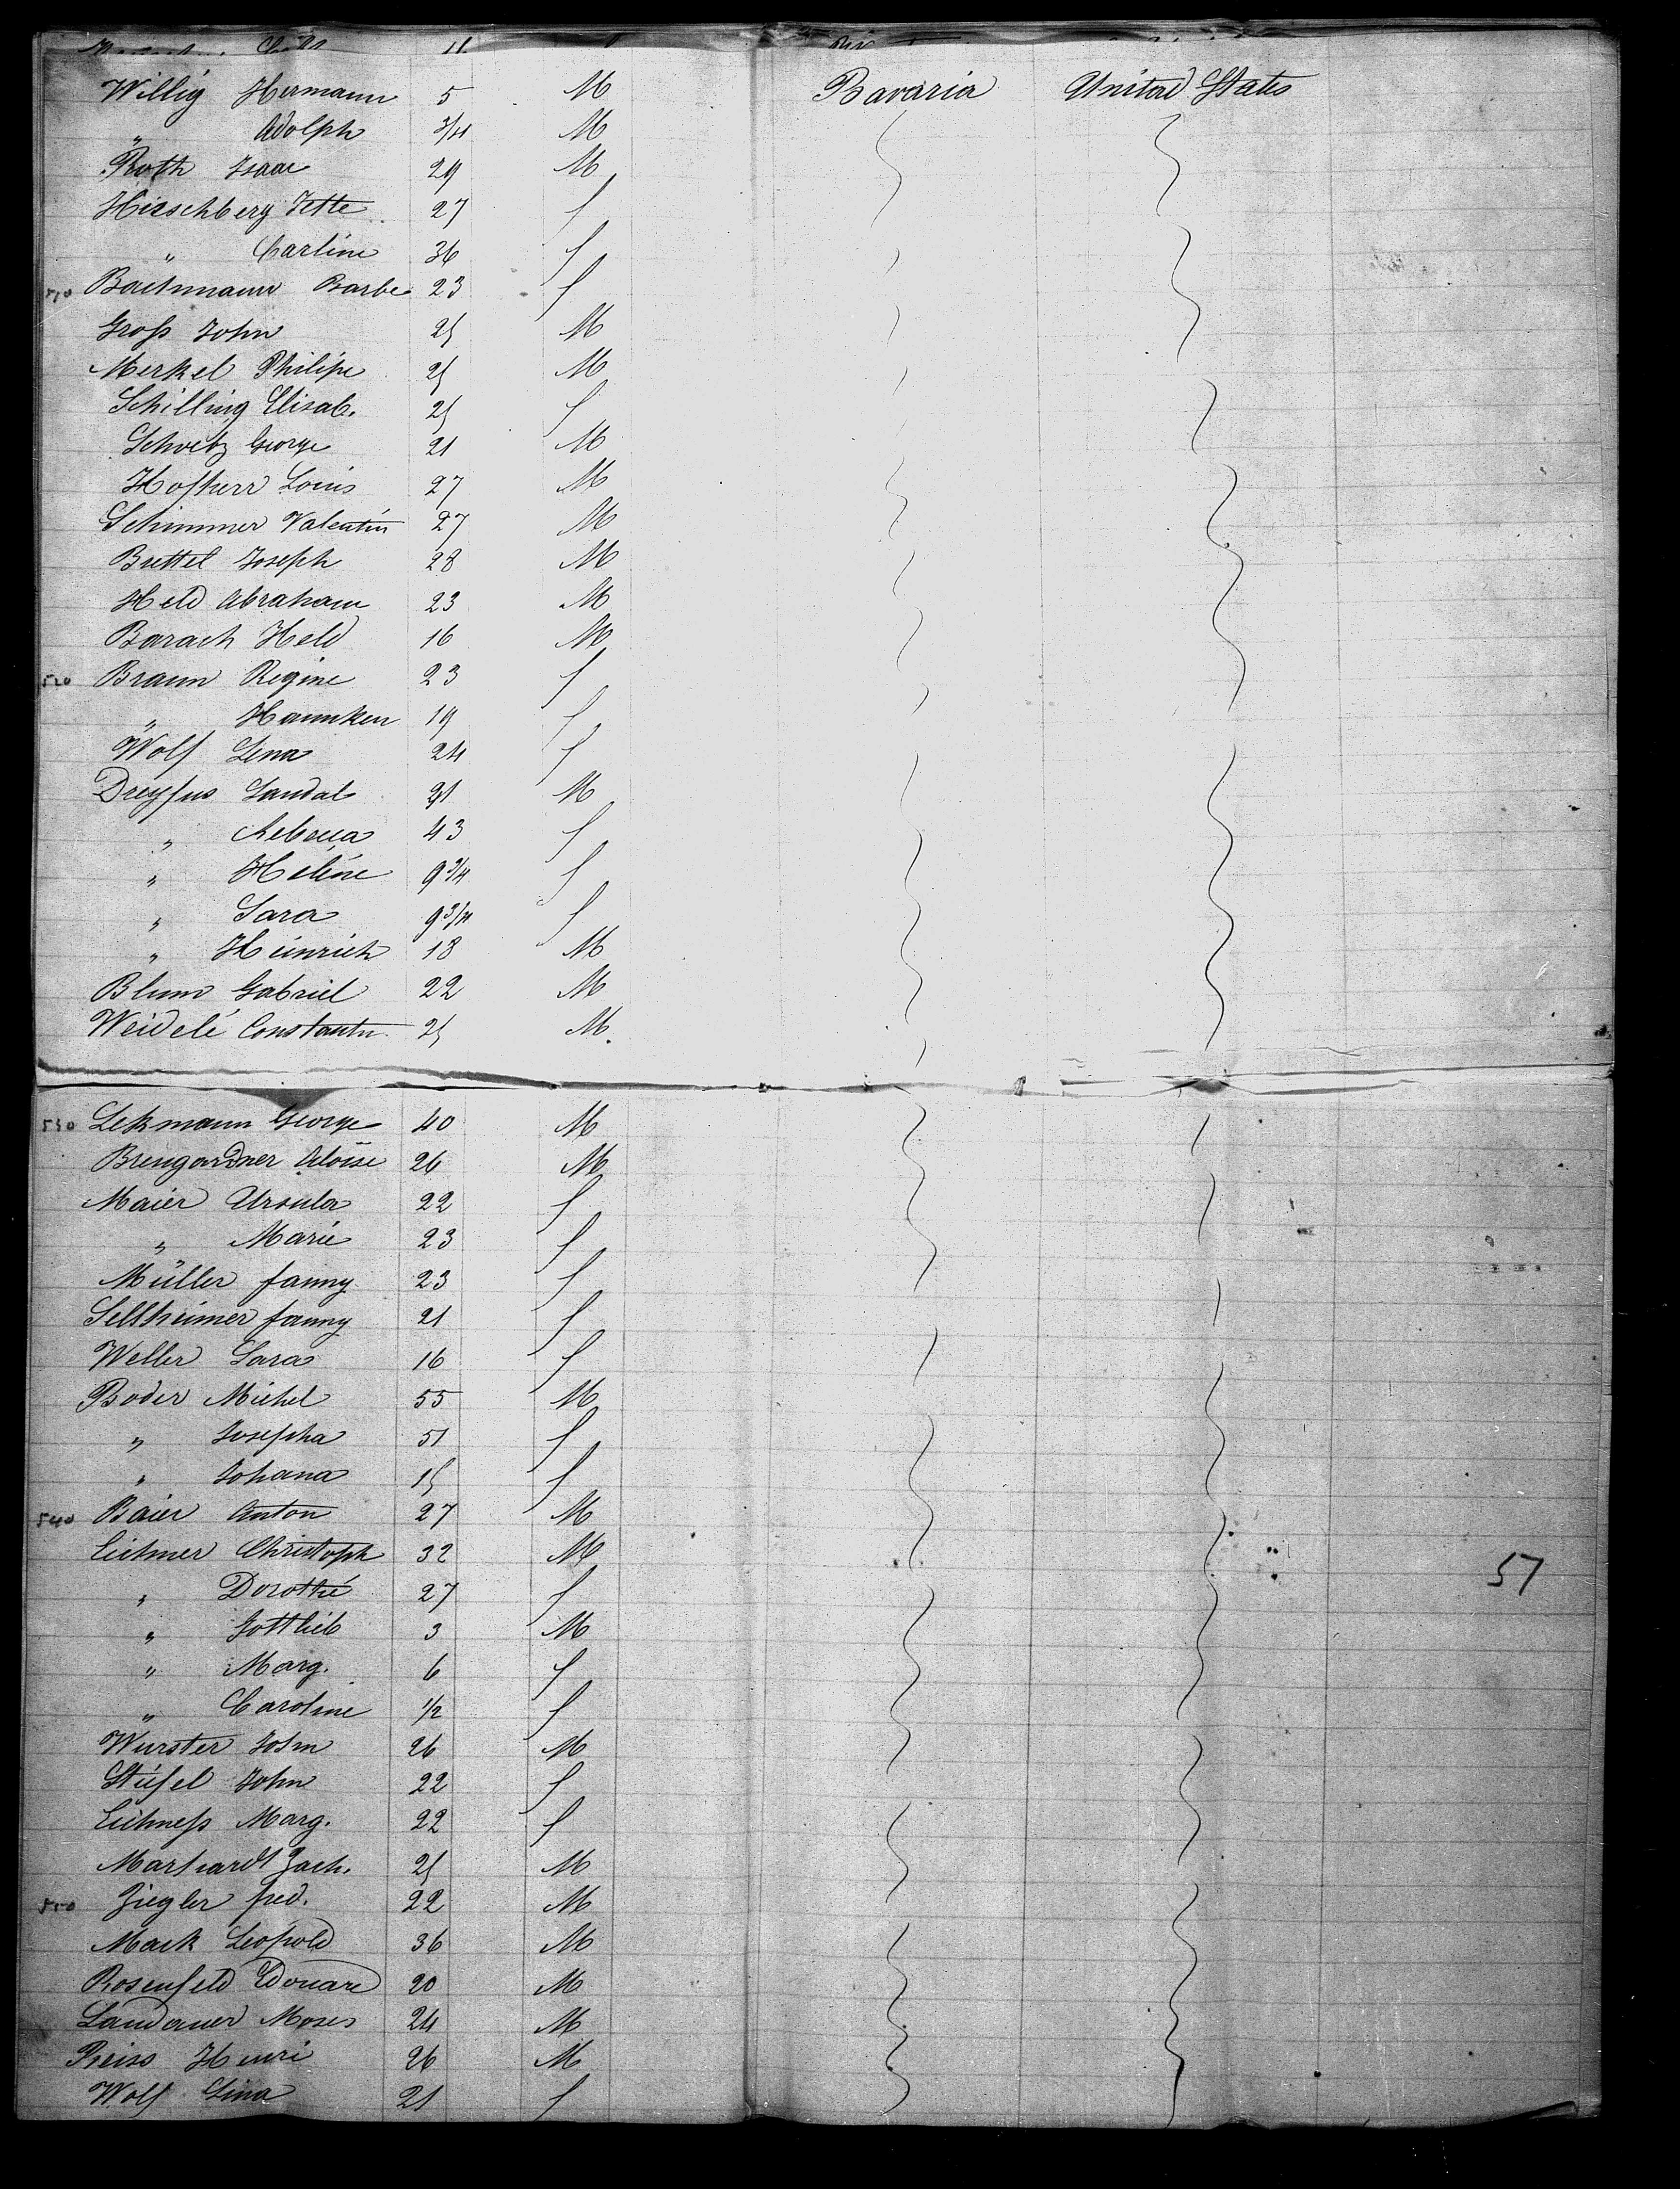 Willig Hermann 5 M Bavaria United States
" Adolph 3/4 M
Roth Isaac 29 M
Hirschberg Jette 27 f
" Carline 36 f
510 Bachmann Barbe 23 f
Groß John 25 M
Merkel Philipe 25 M
Schilling Elisab. 25 f
Schvetz George 21 M
Hofherr Louis 27 M
Schimmer Valentin 27 M
Buttel Joseph 28 M
Held Abraham 23 M
Barach Held 16 M
520 Braun Regine 23 f
" Hannken 19 f
Wolf Lena 24 f
Dreyfus Sandal 21 M
" Rebecca 43 f
" Heléne 9 3/4 f
" Sara 9 3/4 f
" Heinrich 18 M
Blum Gabriel 22 M
Weidelé Constantin 25 M.
530 Lekmann George 40 M
Brengardner Aloise 26 M
Maier Ursula 22 f
" Marie 23 f
Müller fanny 23 f
Sellheimer fanny 21 f
Weller Sara 16 f
Boder Michel 55 M
" Josepha 51 f
" Johana 15 f
540 Baier Anton 27 M
Eichner Christoph 32 M
" Dorothé 27 f
" Gottlieb 3 M
" Marg. 6 f
" Caroline 1/2 f
Wurster John 26 M
Stiefel John 22 f
Eichneß Marg. 22 f
Marhardt Zach. 25 M
550 Ziegler fred. 22 M
Mack Leopold 36 M
Rosenfeld Edouard 20 M
Landauer Moses 24 M
Reiss Henri 26 M
Wolf Lina 21 f
57